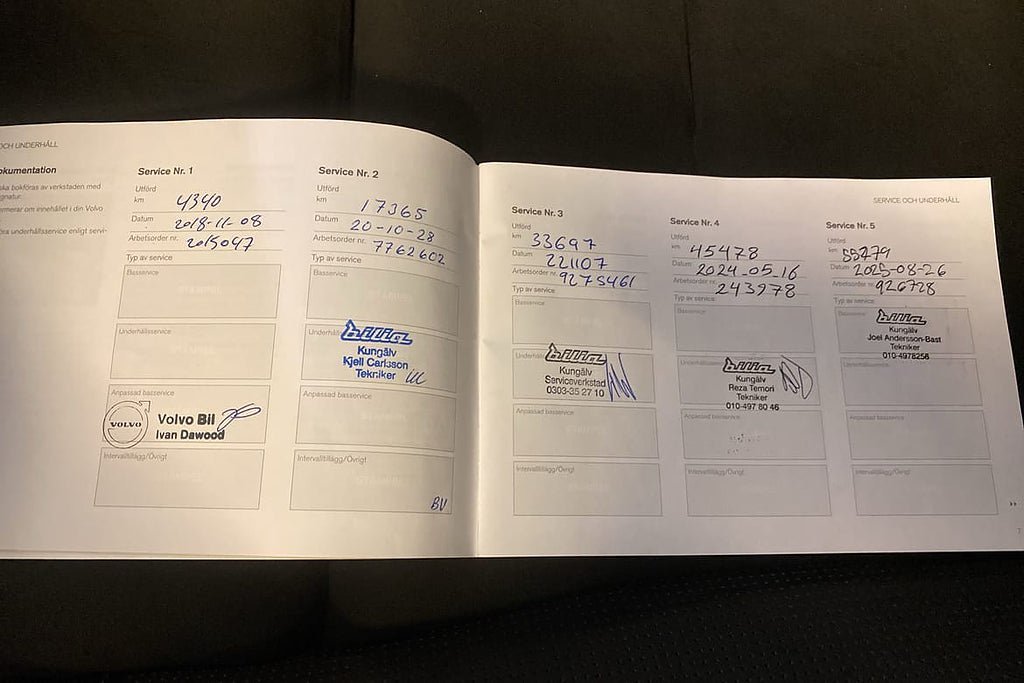 OCH UNDERHÅLL
okumentation
ska bokföras av verkstaden med
ignatur.
ermerar om innehållet i din Volvo
öra underhållsservice enligt servi-
Service Nr. 1
Utförd
km 4340
Datum 2018-11-08
Arbetsorder nr. 2015047
Typ av service:
Basservice
Underhållsservice
Anpassad basservice
VOLVO
Volvo Bil
Ivan Dawood
Intervalltillägg/Övrigt
Service Nr. 2
Utförd
km 17365
Datum 20-10-28
Arbetsorder nr. 7762602
Typ av service:
Basservice
Underhålls
bilia
Kungälv
Kjell Carlsson
Tekniker
Anpassad basservice
Intervalltillägg/Övrigt
BV
SERVICE OCH UNDERHÅLL
Service Nr. 3
Utförd
km 33697
Datum 221107
Arbetsorder nr. 9275461
Typ av service:
Basservice
Underhålls
bilia
Kungälv
Serviceverkstad
0303-35 27 10
Anpassad basservice
Intervalltillägg/Övrigt
Service Nr. 4
Utförd
km 45478
Datum 2024.05.16
Arbetsorder nr. 243978
Typ av service:
Basservice
Underhålls
bilia
Kungälv
Reza Temori
Tekniker
010-497 80 46
Anpassad basservice
Intervalltillägg/Övrigt
Service Nr. 5
Utförd
km 55279
Datum 2025-08-26
Arbetsorder nr. 926728
Typ av service:
Basservice
bilia
Kungälv
Joel Andersson-Bast
Tekniker
010-4978256
Underhållsservice
Anpassad basservice
Intervalltillägg/Övrigt
7